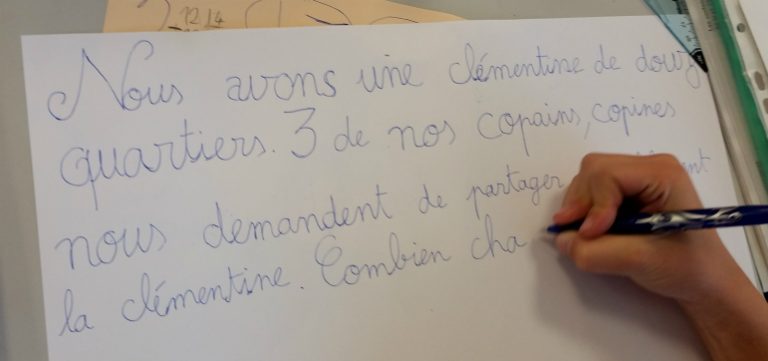 12 14
Nous avons une clémentine de douz
quartiers. 3 de nos copains, copines
nous demandent de partager
la clémentine. Combien cha